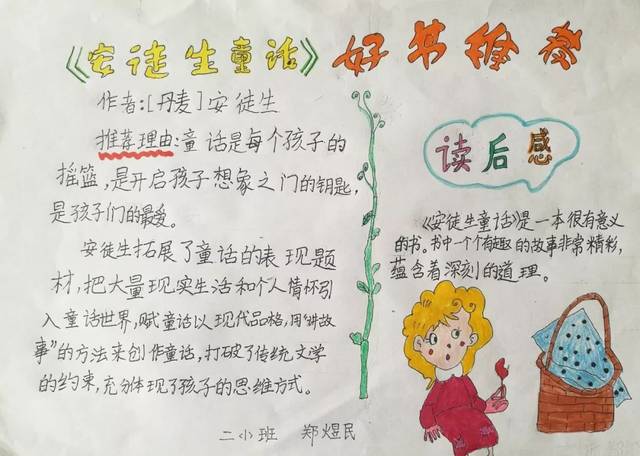 《安徒生童话》好书推荐
作者:[丹麦]安徒生
推荐理由:童话是每个孩子的
摇篮,是开启孩子想象之门的钥匙,
是孩子们的最爱。
安徒生拓展了童话的表现题
材,把大量现实生活和个人情怀引
入童话世界,赋童话以现代品格,用“讲故
事”的方法来创作童话,打破了传统文学
的约束,充分体现了孩子的思维方式。
二小班 郑煜民
读后感
《安徒生童话》是一本很有意义
的书。书中一个个有趣的故事非常精彩,
蕴含着深刻的道理。